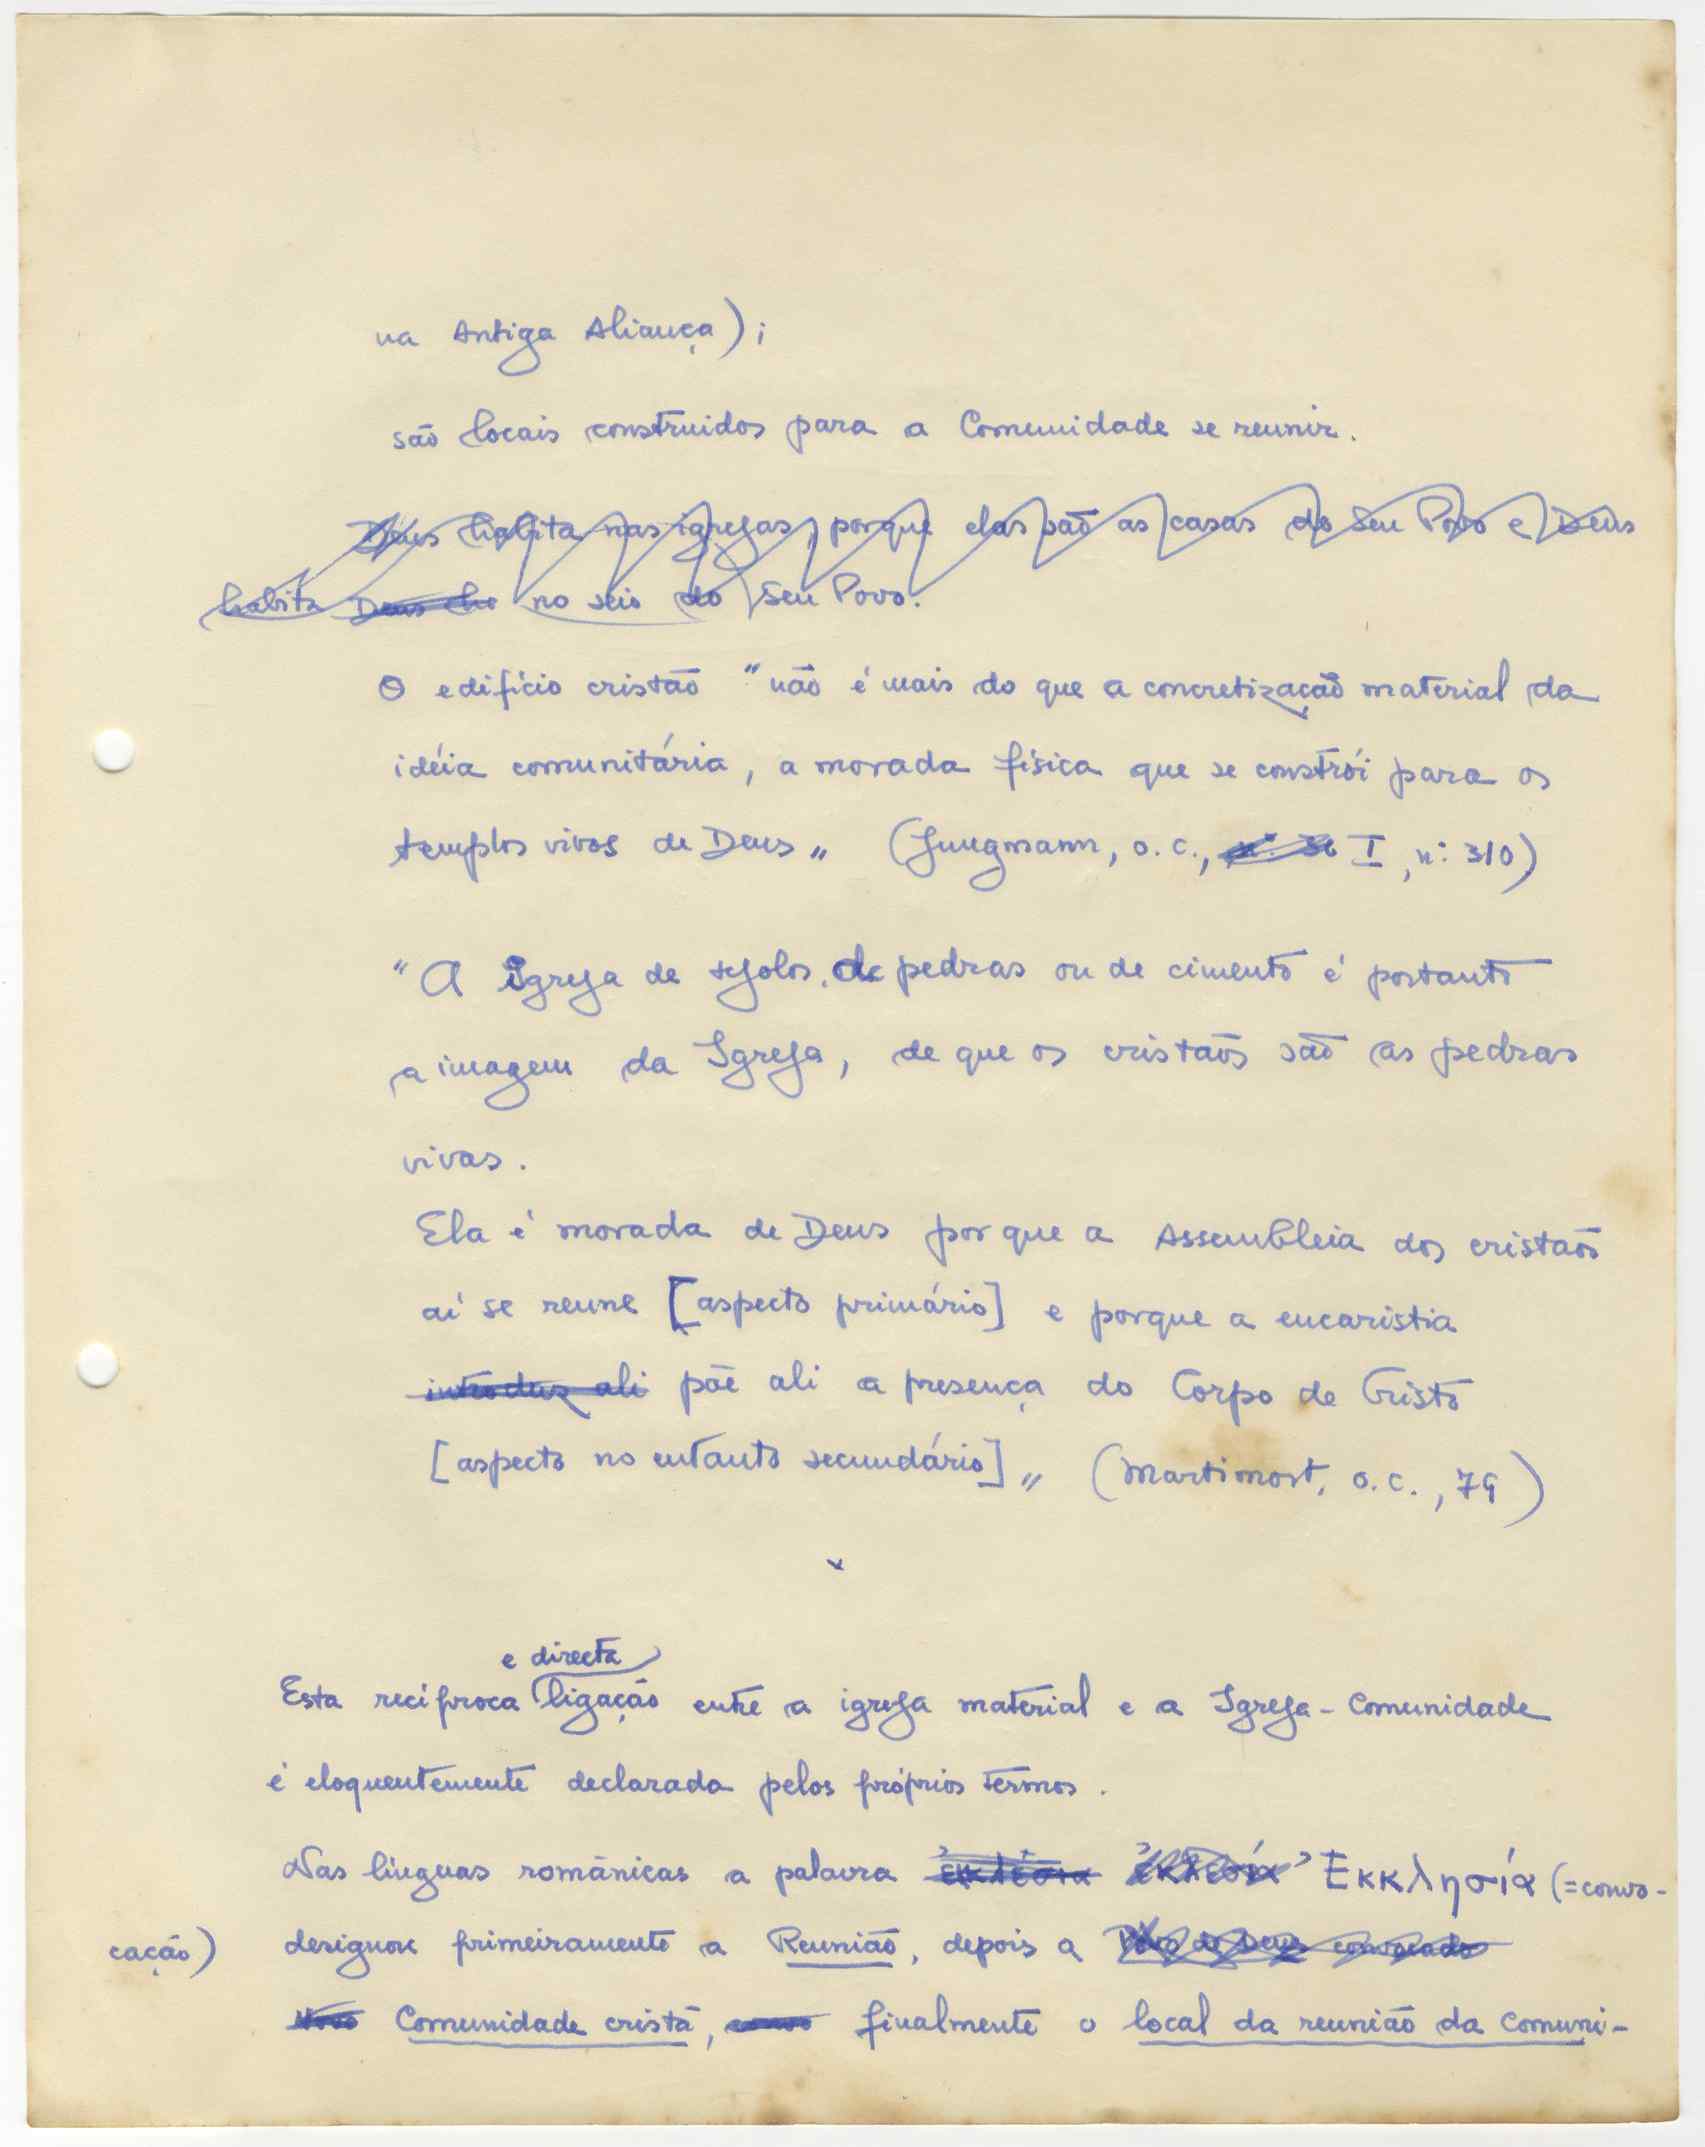 na Antiga Aliança);
são locais construidos para a Comunidade se reunir.
Deus habita nas igrejas, porque elas são as casas do Seu Povo e Deus
habita Deus no seio do Seu Povo.
O edifício cristão "não é mais do que a concretização material da
idéia comunitária, a morada física que se constrói para os
templos vivos de Deus„ (Jungmann, o.c., I, nº 310)
"A igreja de tijolos, de pedras ou de cimento é portanto
a imagem da Igreja, de que os cristãos são as pedras
vivas.
Ela é morada de Deus porque a Assembleia dos cristãos
aí se reune [aspecto primário] e porque a eucaristia
introduz ali põe ali a presença do Corpo de Cristo
[aspecto no entanto secundário]„ (Martimort, o.c., 79)
x
e directa
Esta recíproca ligação entre a igreja material e a Igreja-Comunidade
é eloquentemente declarada pelos próprios termos.
Nas línguas românicas a palavra Ἐκκλησία (=convo-
cação) designou primeiramente a Reunião, depois a Povo de Deus convocado
novo Comunidade cristã, como finalmente o local da reunião da comuni-